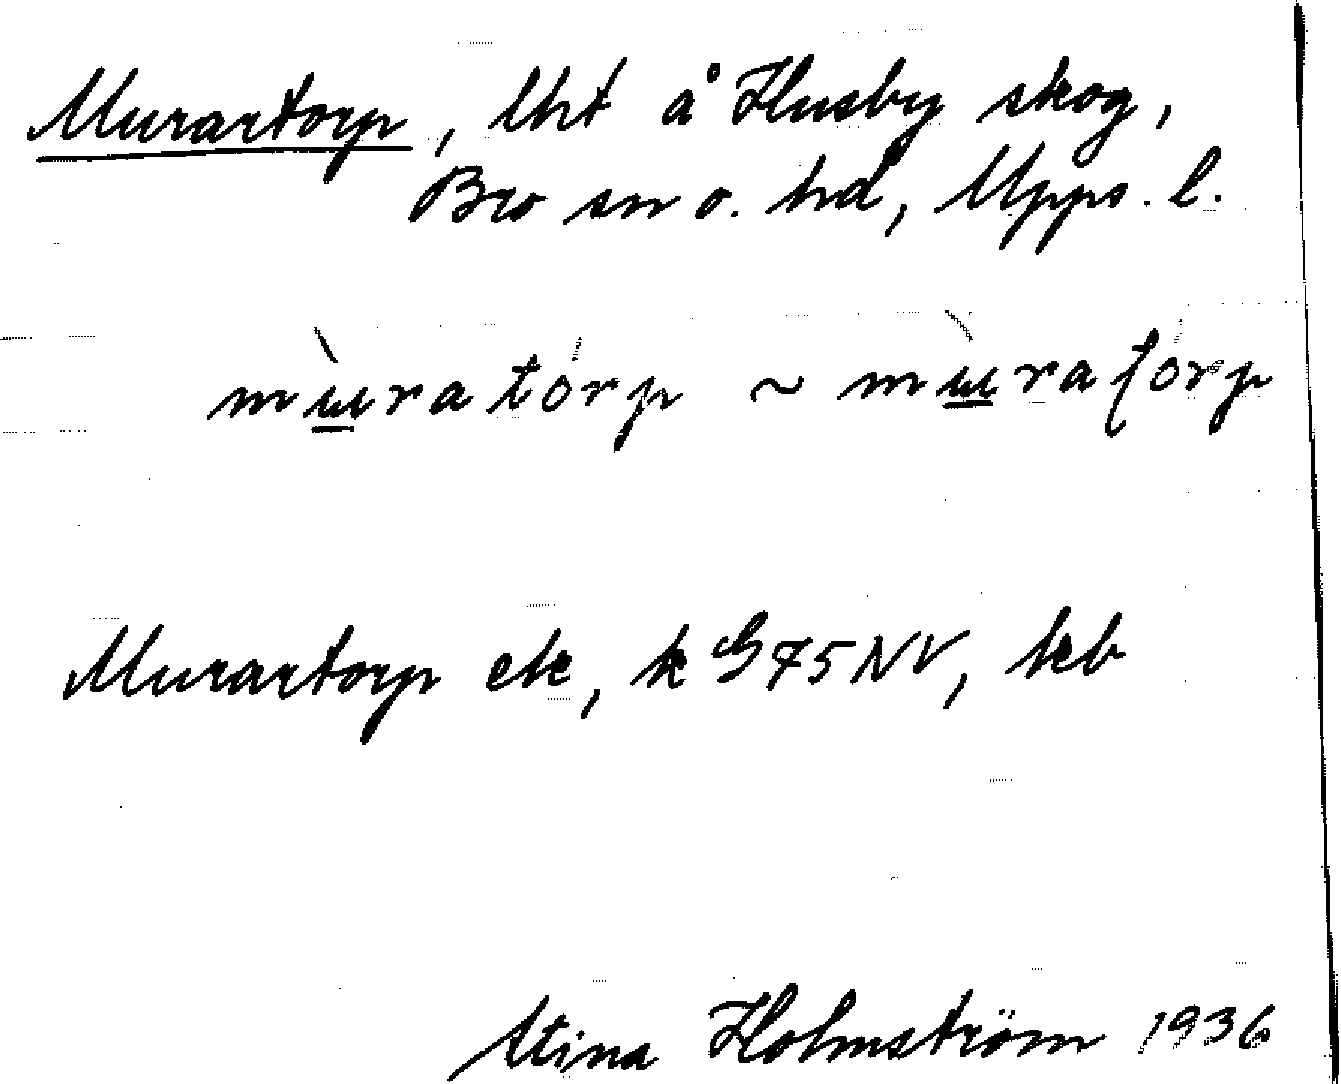 Murartorp, lht å Husby skog,
Bro sn o. hd, Upps. l.
mùratórp ~ mùraƭórp
Murartorp ek, k G75NV, kb
Stina Holmström 1936